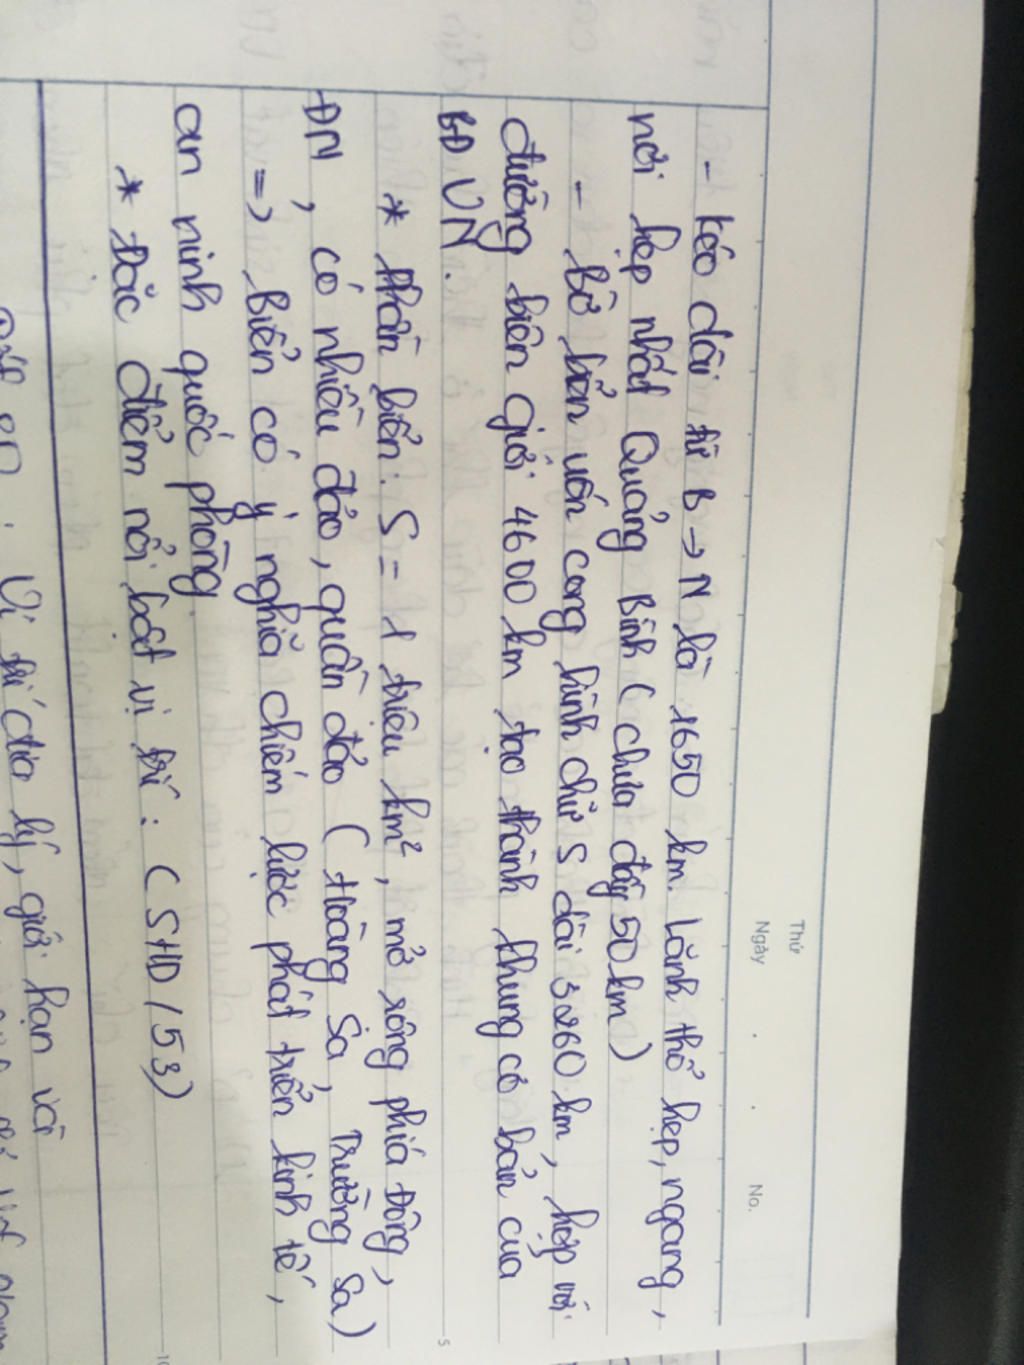 Thứ
Ngày . . No.
- kéo dài từ B → N là 1650 km. Lãnh thổ hẹp, ngang,
nơi hẹp nhất Quảng Bình ( chưa đầy 50 km )
- Bờ biển uốn cong hình chữ S dài 3260 km, hợp với
đường biên giới 4600 km tạo thành khung cơ bản của
BĐ VN.
* Phần biển : S = 1 triệu km², mở rộng phía Đông,
ĐN, có nhiều đảo, quần đảo ( Hoàng Sa, Trường Sa )
=> biển có ý nghĩa chiến lược phát triển kinh tế,
an ninh quốc phòng.
* Đặc điểm nổi bật vị trí : ( SHD / 53 )
Vị trí địa lý, giới hạn và
5
10